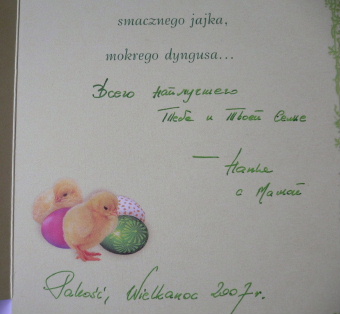 smacznego jajka,
mokrego dyngusa...
Всего наилучшего
Тебе и Твоей Семье
— Наталья
с Мамой
Pakość, Wielkanoc 2007 r.